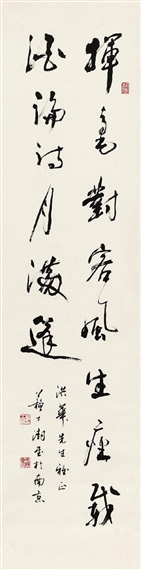 揮毫對客風生座載
酒論詩月滿篷
洪華先生雅正
蕭士湘書於南京